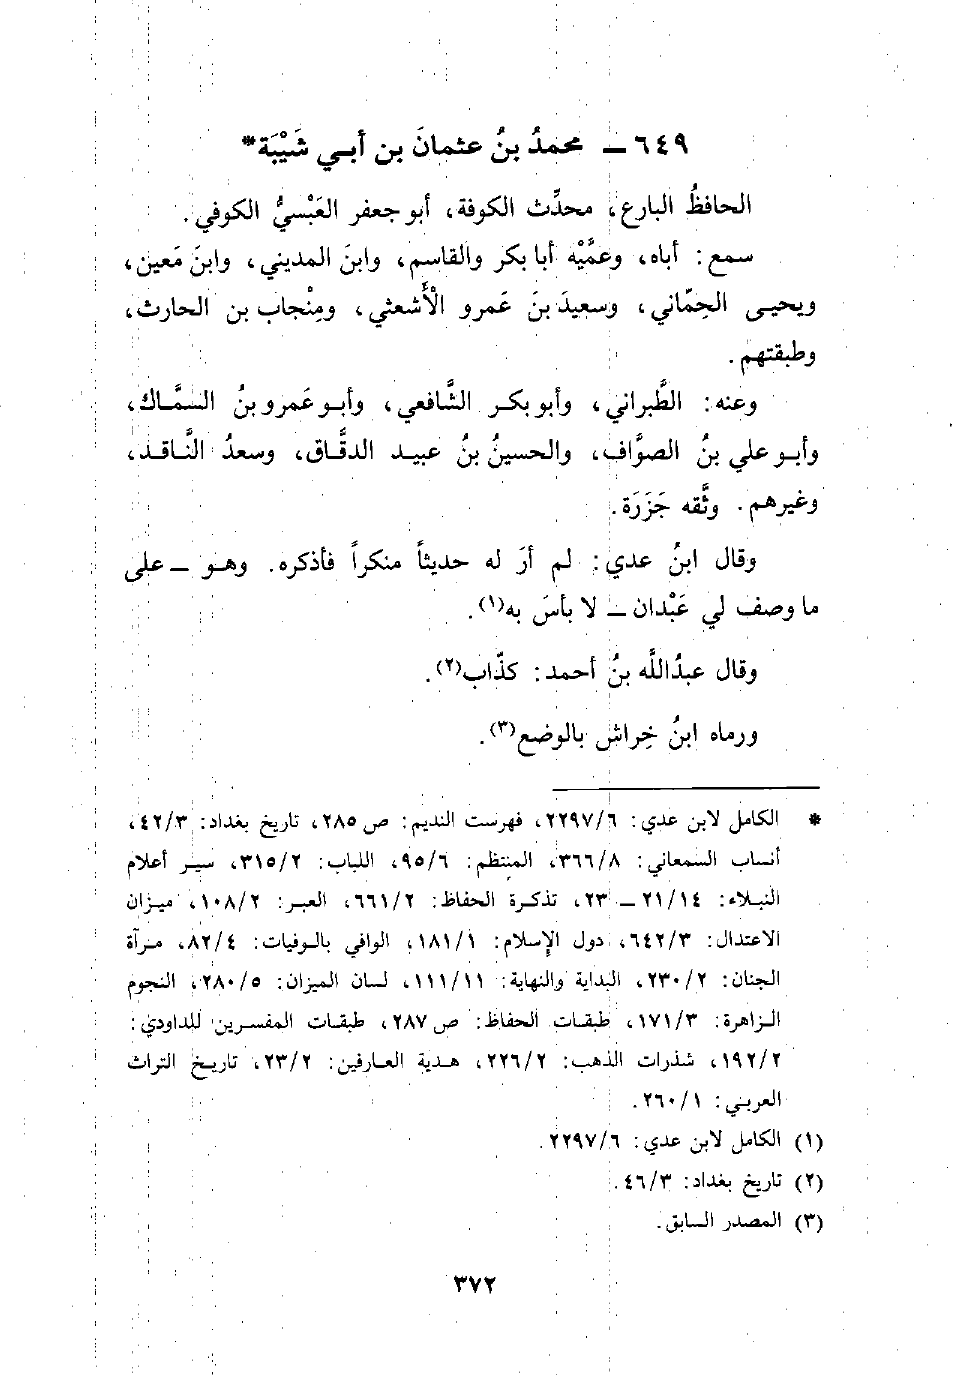 ٦٤٩ ــ محمدُ بنُ عثمانَ بن أبي شَيْبَة*
الحافظُ البارع، محدِّث الكوفة، أبو جعفر العَبْسيُّ الكوفي.
سمع: أباه، وعمَّيْه أبا بكر والقاسم، وابنَ المديني، وابنَ مَعين،
ويحيى الحِمّاني، وسعيدَ بنَ عَمرو الْأَشعثي، ومِنْجاب بن الحارث،
وطبقتهم.
وعنه: الطَّبراني، وأبو بكر الشَّافعي، وأبو عَمرو بنُ السمَّاك،
وأبو علي بنُ الصوَّاف، والحسينُ بنُ عبيد الدقَّاق، وسعدُ النَّاقد،
وغيرهم. وثَّقه جَزَرَة.
وقال ابنُ عدي: لم أرَ له حديثاً منكراً فأذكره. وهو ــ على
ما وصف لي عَبْدان ــ لا بأسَ به(١).
وقال عبدُاللَّه بنُ أحمد: كذّاب(٢).
ورماه ابنُ خِراش بالوضع(٣).
* الكامل لابن عدي: ٢٢٩٧/٦، فهرست النديم: ص ٢٨٥، تاريخ بغداد: ٤٢/٣،
أنساب السمعاني: ٣٦٦/٨، المنتظم: ٩٥/٦، اللباب: ٣١٥/٢، سير أعلام
النبلاء: ٢١/١٤ ــ ٢٣، تذكرة الحفاظ: ٦٦١/٢، العبر: ١٠٨/٢، ميزان
الاعتدال: ٦٤٢/٣، دول الإسلام: ١٨١/١، الوافي بالوفيات: ٨٢/٤، مرآة
الجنان: ٢٣٠/٢، البداية والنهاية: ١١١/١١، لسان الميزان: ٢٨٠/٥، النجوم
الزاهرة: ١٧١/٣، طبقات الحفاظ: ص ٢٨٧، طبقات المفسرين للداودي:
١٩٢/٢، شذرات الذهب: ٢٢٦/٢، هدية العارفين: ٢٣/٢، تاريخ التراث
العربي: ٢٦٠/١.
(١) الكامل لابن عدي: ٢٢٩٧/٦.
(٢) تاريخ بغداد: ٤٦/٣.
(٣) المصدر السابق.
٣٧٢